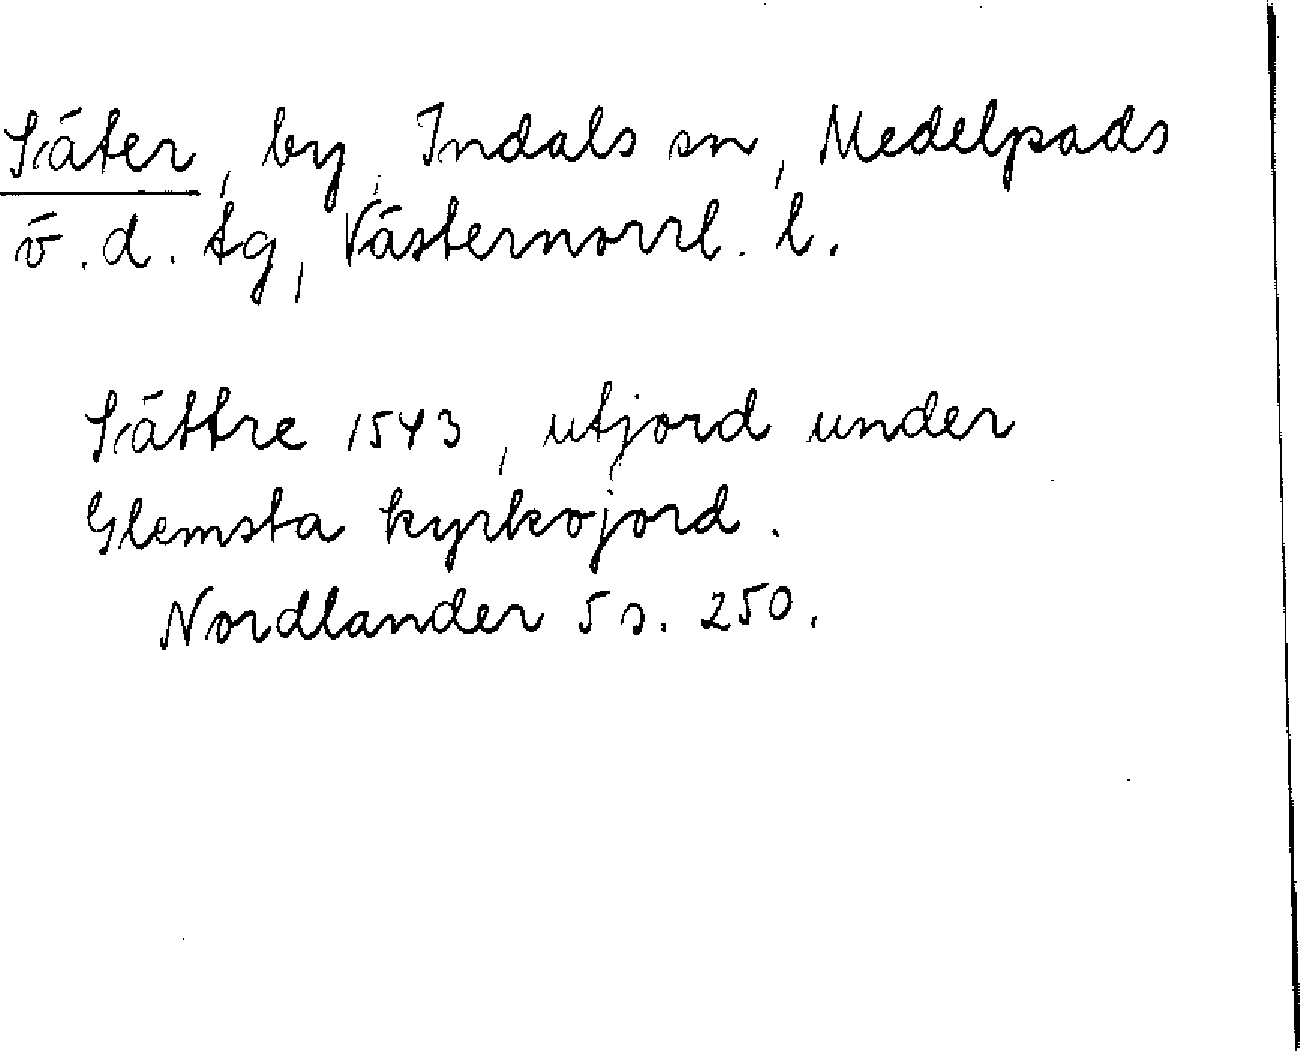 Säter, by, Indals sn, Medelpads
v. d. tg, Västernorrl. l.
Sättre 1543, utjord under
Glemsta kyrkojord.
Nordlander 5 s. 250.